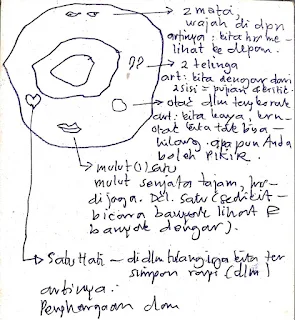 2 mata,
wajah di dpn
artinya : kita hrs me-
lihat ke depan.
2 telinga
art : kita dengar dari
2 sisi = pujian & kritik
otak dlm tengkorak
art : kita kaya, krn
otak kita tak bisa
hilang. apapun Anda
boleh PIKIR.
mulut (1) satu
mulut senjata tajam, hrs
dijaga. satu (sedikit
bicara banyak lihat &
banyak dengar).
Satu Hati – di dlm tulang iga kita ter
simpan rapi (dlm)
artinya :
Penghargaan dan